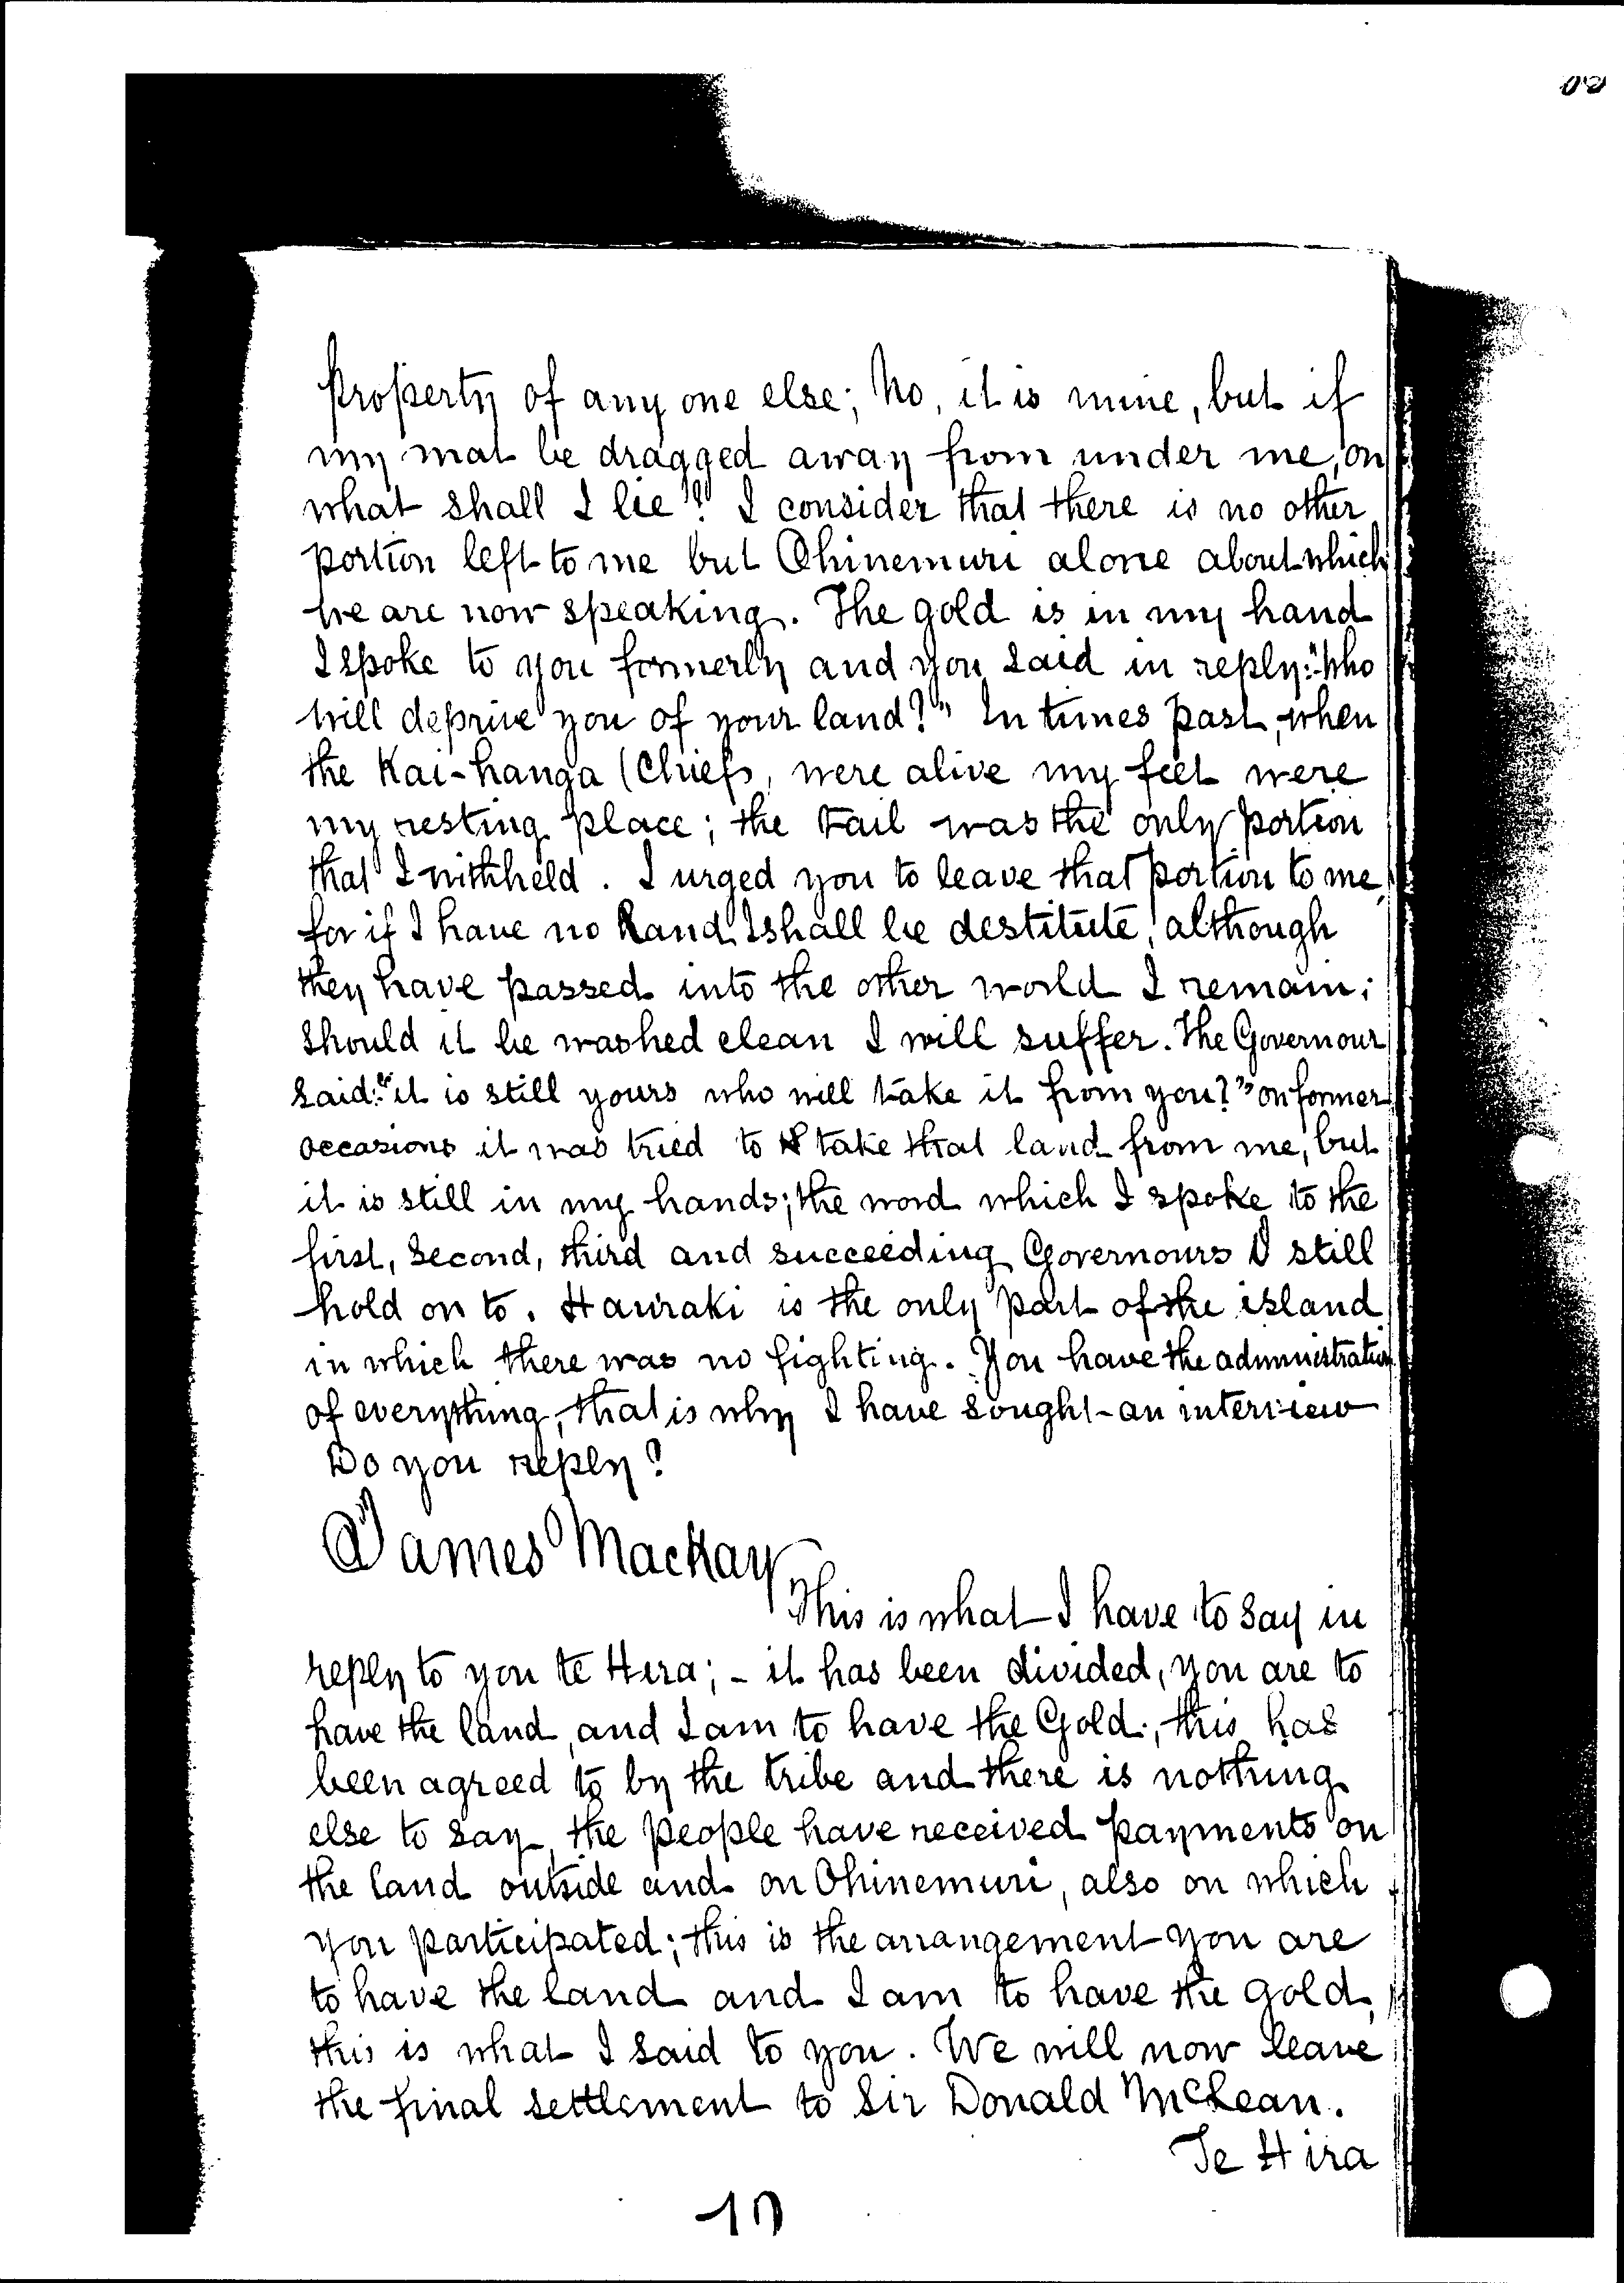 property of any one else; No, it is mine, but if
my mat be dragged away from under me, on
what shall I lie? I consider that there is no other
portion left to me but Ohinemuri alone about which
we are now speaking. The gold is in my hand
I spoke to you formerly and you said in reply: "Who
will deprive you of your land?" In times past, when
the Kai-hanga (Chiefs, were alive my feet were
my resting place; the tail was the only portion
that I withheld. I urged you to leave that portion to me,
for if I have no land I shall be destitute, although
they have passed into the other world I remain;
Should it be washed clean I will suffer. The Governour
said: "it is still yours who will take it from you?" on former
occasions it was tried to take that land from me, but
it is still in my hands; the word which I spoke to the
first, second, third and succeeding Governours I still
hold on to. Hauraki is the only part of the island
in which there was no fighting. You have the administration
of everything, that is why I have sought an interview
Do you reply?
James Mackay
This is what I have to say in
reply to you te Hira; - it has been divided, you are to
have the land, and I am to have the Gold; this has
been agreed to by the tribe and there is nothing
else to say, the people have received payments on
the land outside and on Ohinemuri, also on which
you participated; this is the arrangement you are
to have the land and I am to have the gold,
this is what I said to you. We will now leave
the final settlement to Sir Donald McLean.
Te Hira